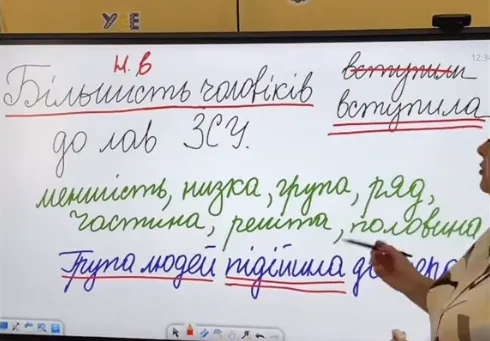 У Е
12:34
Н. в
Більшість чоловіків вступили
вступила
до лав ЗСУ.
меншість, низка, група, ряд,
частина, решта, половина
Група людей підійшла